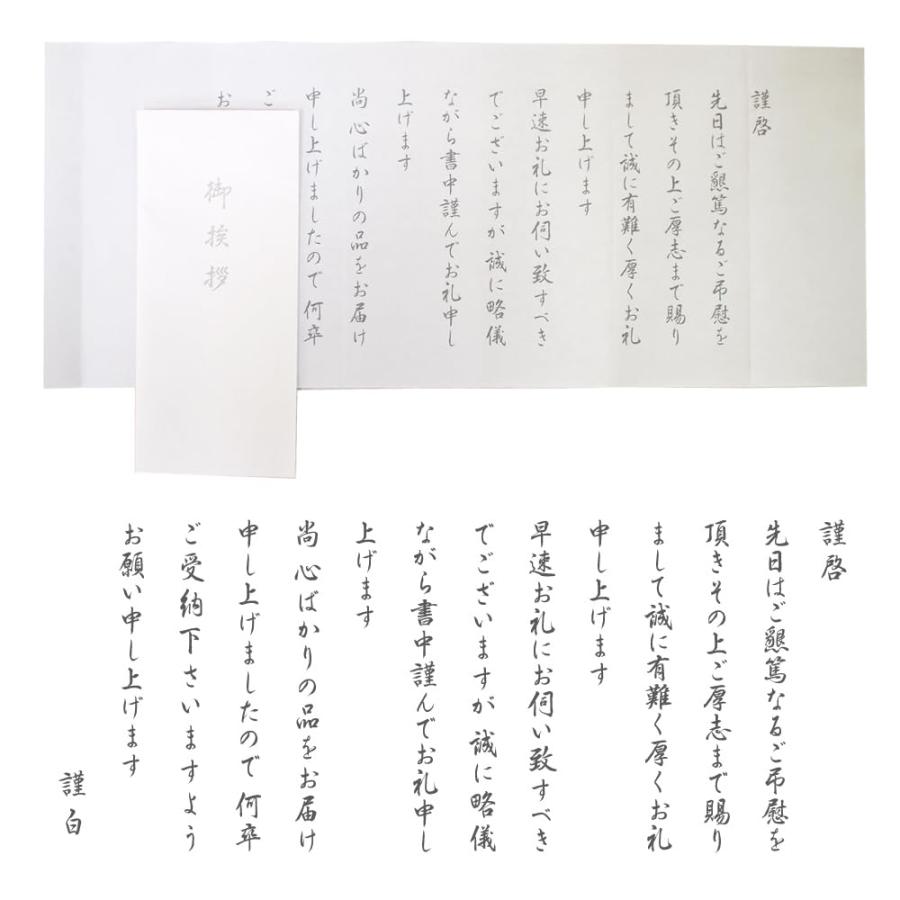 謹啓
先日はご懇篤なるご弔慰を
頂きその上ご厚志まで賜り
まして誠に有難く厚くお礼
申し上げます
早速お礼にお伺い致すべき
でございますが 誠に略儀
ながら書中謹んでお礼申し
上げます
尚 心ばかりの品をお届け
申し上げましたので 何卒
ご
お
御挨拶
謹啓
先日はご懇篤なるご弔慰を
頂きその上ご厚志まで賜り
まして誠に有難く厚くお礼
申し上げます
早速お礼にお伺い致すべき
でございますが 誠に略儀
ながら書中謹んでお礼申し
上げます
尚 心ばかりの品をお届け
申し上げましたので 何卒
ご受納下さいますよう
お願い申し上げます
謹白